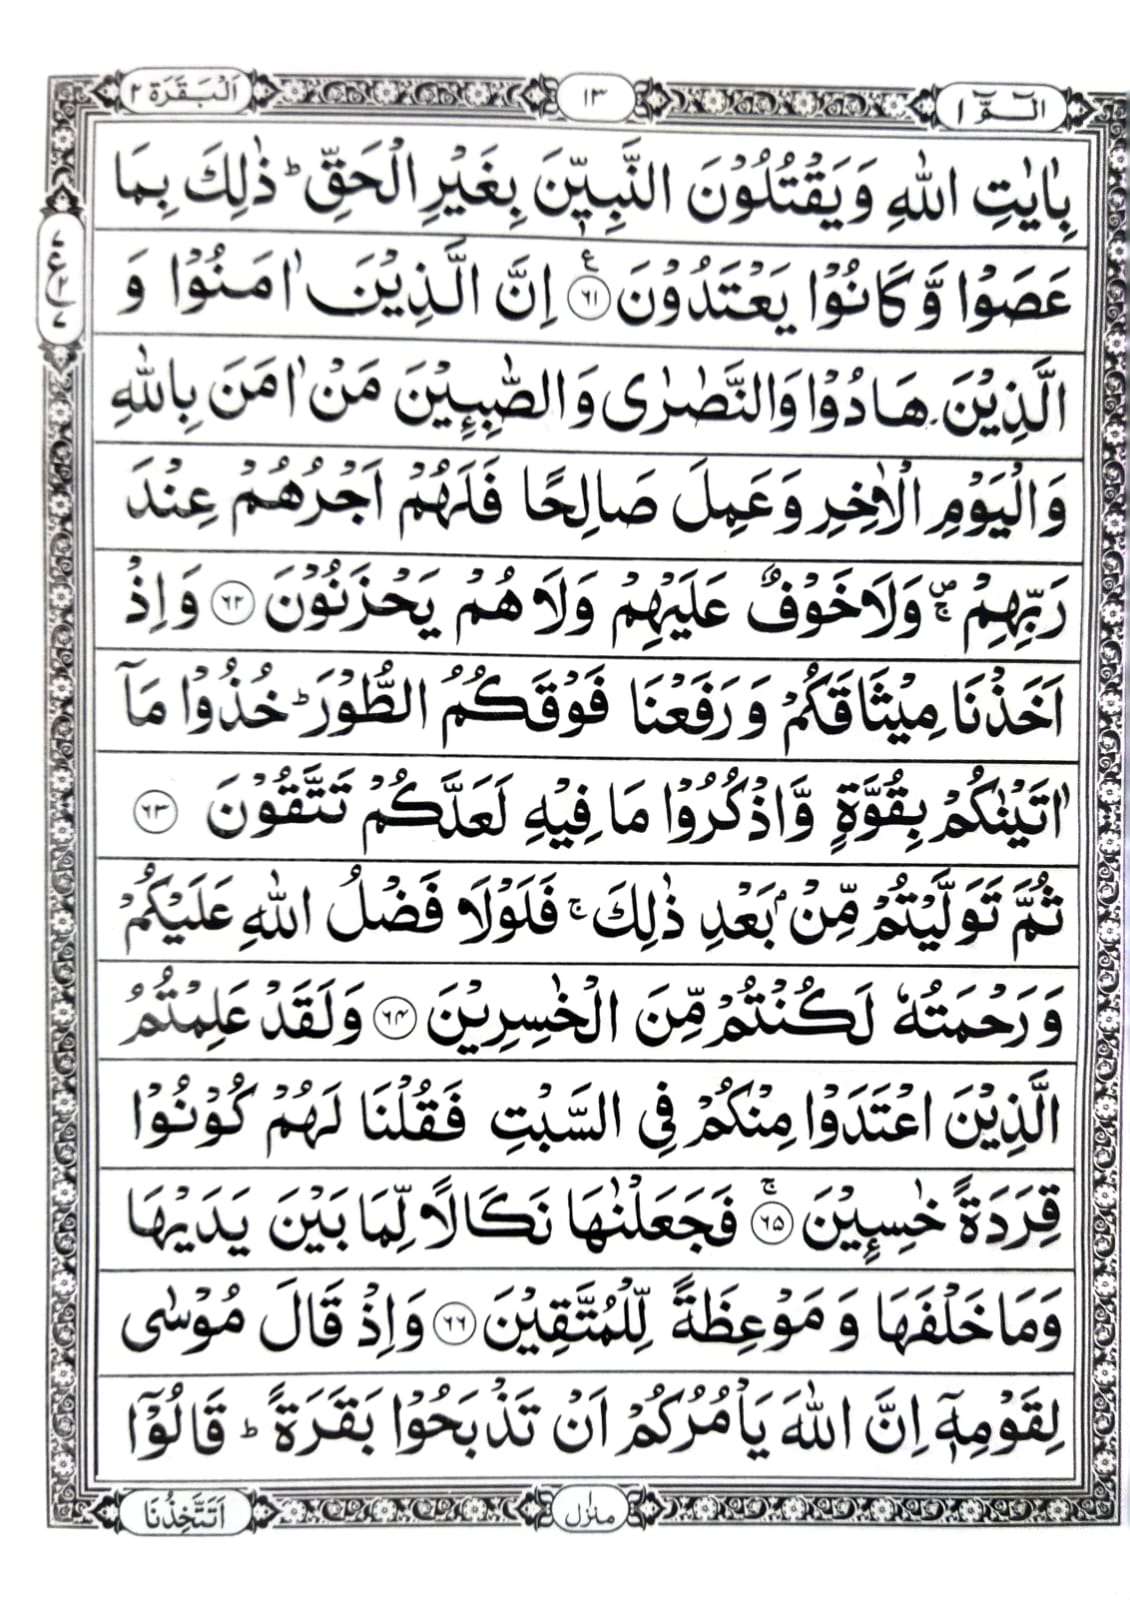 الٓمّٓ ١
١٣
اَلْبَقَرَة ٢
بِاٰيٰتِ اللّٰهِ وَيَقْتُلُوْنَ النَّبِيّٖنَ بِغَيْرِ الْحَقِّ ؕ ذٰلِكَ بِمَا
عَصَوْا وَّكَانُوْا يَعْتَدُوْنَ ۧ ﴿٦١﴾ اِنَّ الَّذِيْنَ اٰمَنُوْا وَ
الَّذِيْنَ هَادُوْا وَالنَّصٰرٰى وَالصّٰبِـِٕيْنَ مَنْ اٰمَنَ بِاللّٰهِ
وَالْيَوْمِ الْاٰخِرِ وَعَمِلَ صَالِحًا فَلَهُمْ اَجْرُهُمْ عِنْدَ
رَبِّهِمْ ۪ۚ وَلَا خَوْفٌ عَلَيْهِمْ وَلَا هُمْ يَحْزَنُوْنَ ﴿٦٢﴾ وَاِذْ
اَخَذْنَا مِيْثَاقَكُمْ وَرَفَعْنَا فَوْقَكُمُ الطُّوْرَ ؕ خُذُوْا مَآ
اٰتَيْنٰكُمْ بِقُوَّةٍ وَّاذْكُرُوْا مَا فِيْهِ لَعَلَّكُمْ تَتَّقُوْنَ ﴿٦٣﴾
ثُمَّ تَوَلَّيْتُمْ مِّنْۢ بَعْدِ ذٰلِكَ ۚ فَلَوْلَا فَضْلُ اللّٰهِ عَلَيْكُمْ
وَرَحْمَتُهٗ لَكُنْتُمْ مِّنَ الْخٰسِرِيْنَ ﴿٦٤﴾ وَلَقَدْ عَلِمْتُمُ
الَّذِيْنَ اعْتَدَوْا مِنْكُمْ فِي السَّبْتِ فَقُلْنَا لَهُمْ كُوْنُوْا
قِرَدَةً خٰسِـِٕيْنَ ۚ ﴿٦٥﴾ فَجَعَلْنٰهَا نَكَالًا لِّمَا بَيْنَ يَدَيْهَا
وَمَا خَلْفَهَا وَمَوْعِظَةً لِّلْمُتَّقِيْنَ ﴿٦٦﴾ وَاِذْ قَالَ مُوْسٰى
لِقَوْمِهٖٓ اِنَّ اللّٰهَ يَاْمُرُكُمْ اَنْ تَذْبَحُوْا بَقَرَةً ؕ قَالُوْٓا
منزل ١
اَتَتَّخِذُنَا